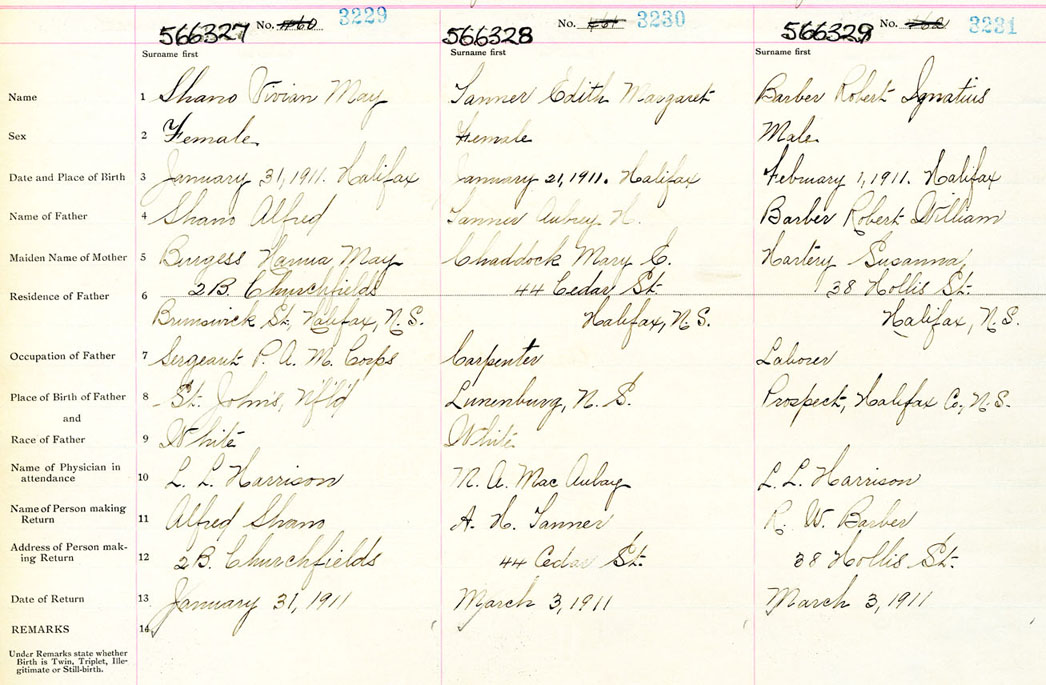 566327 No. 460 3229 566328 No. 461 3230 566329 No. 462 3231
Surname first Surname first Surname first
Name 1 Shano Vivian May Tanner Edith Margaret Barber Robert Ignatius
Sex 2 Female Female Male
Date and Place of Birth 3 January 31, 1911. Halifax January 21, 1911. Halifax February 1, 1911. Halifax
Name of Father 4 Shano Alfred Tanner Aubrey H. Barber Robert William
Maiden Name of Mother 5 Burgess Hanna May Chaddock Mary E. Hartery Susanna
Residence of Father 6 2B. Churchfields 44 Cedar St. 38 Hollis St.
Brunswick St. Halifax, N.S. Halifax, N.S. Halifax, N.S.
Occupation of Father 7 Sergeant P. A. M. Corps Carpenter Laborer
Place of Birth of Father 8 St. Johns, Nfld Lunenburg, N.S. Prospect, Halifax Co, N.S.
and
Race of Father 9 White White
Name of Physician in
attendance 10 L. L. Harrison N. A. Mac Aubay L. L. Harrison
Name of Person making
Return 11 Alfred Shano A. H. Tanner R. W. Barber
Address of Person mak-
ing Return 12 2B. Churchfields 44 Cedar St. 38 Hollis St.
Date of Return 13 January 31, 1911 March 3, 1911 March 3, 1911
REMARKS 14
Under Remarks state whether
Birth is Twin, Triplet, Ille-
gitimate or Still-birth.